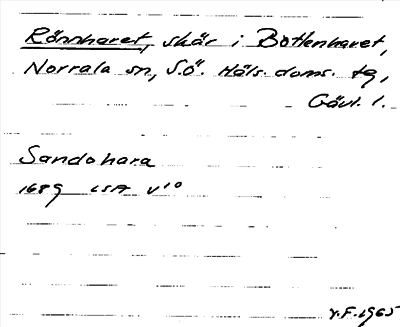 Rönnharet, skär i Bottenhavet,
Norrala sn, S.ö. Häls. doms. tg,
Gävl. l.
Sandohara
1689 LSA V10
V.F. 1965